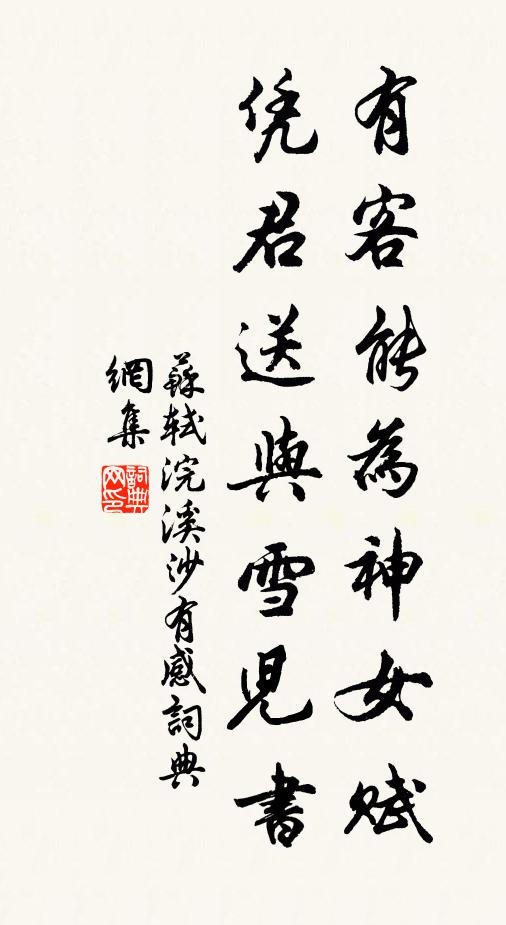 有客能為神女賦
凭君送與雪兒書
蘇軾浣溪沙有感詞典
網集
詞典
网印